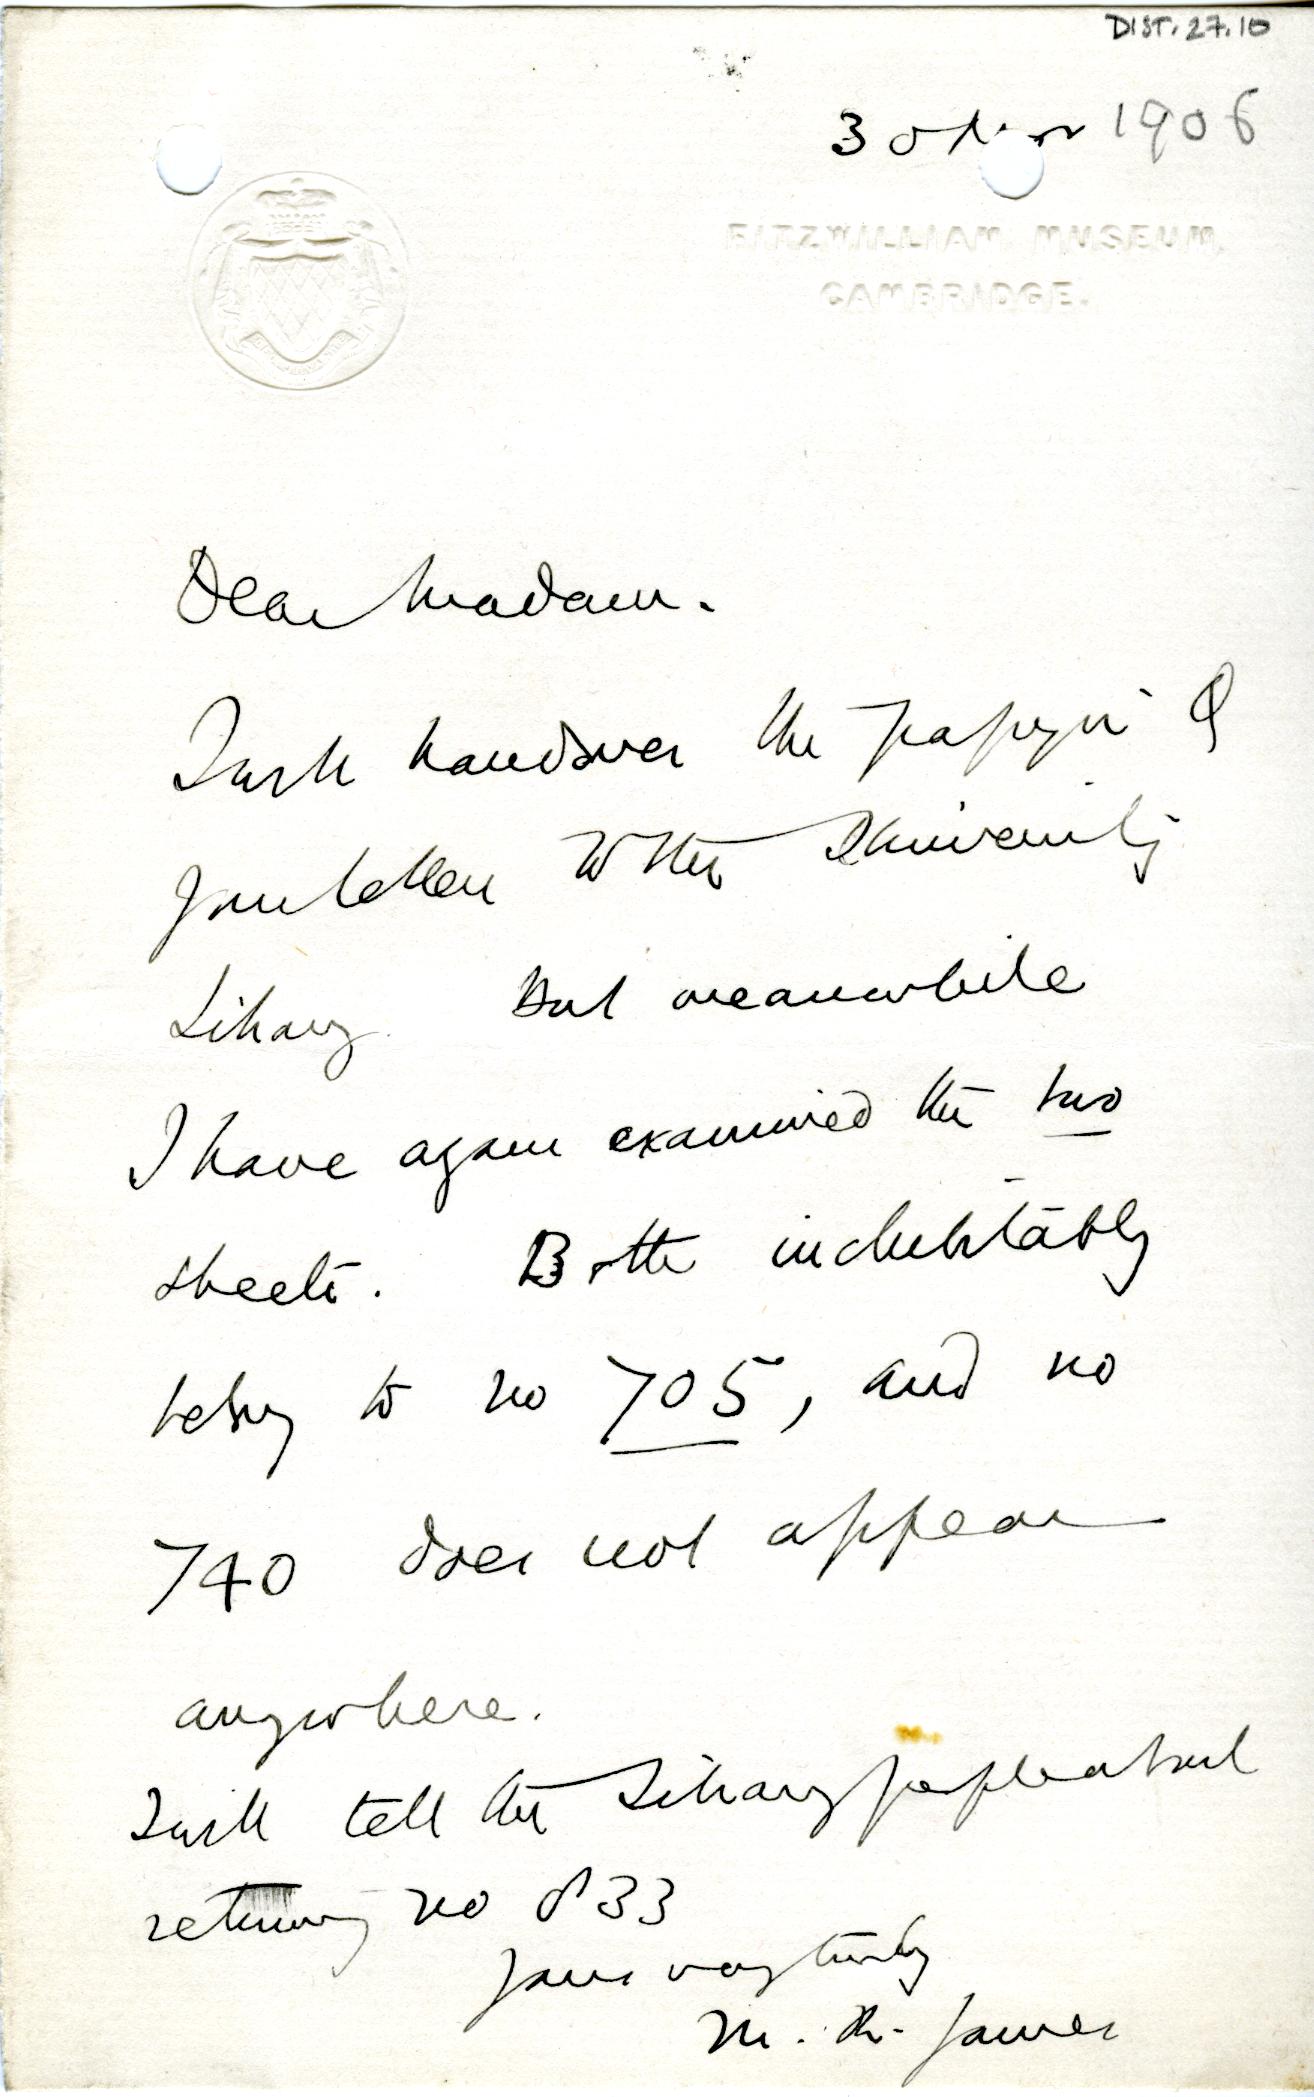 DIST. 27.10
30 1906
FITZWILLIAM MUSEUM,
CAMBRIDGE.
Dear Madam.
I will hand over the papyri &
your letter to the University
Library but meanwhile
I have again examined the two
sheets. Both indubitably
belong to no 705, and no
740 does not appear
anywhere.
I will tell the Library people about
returning no 833
Yours very truly
M. R. James